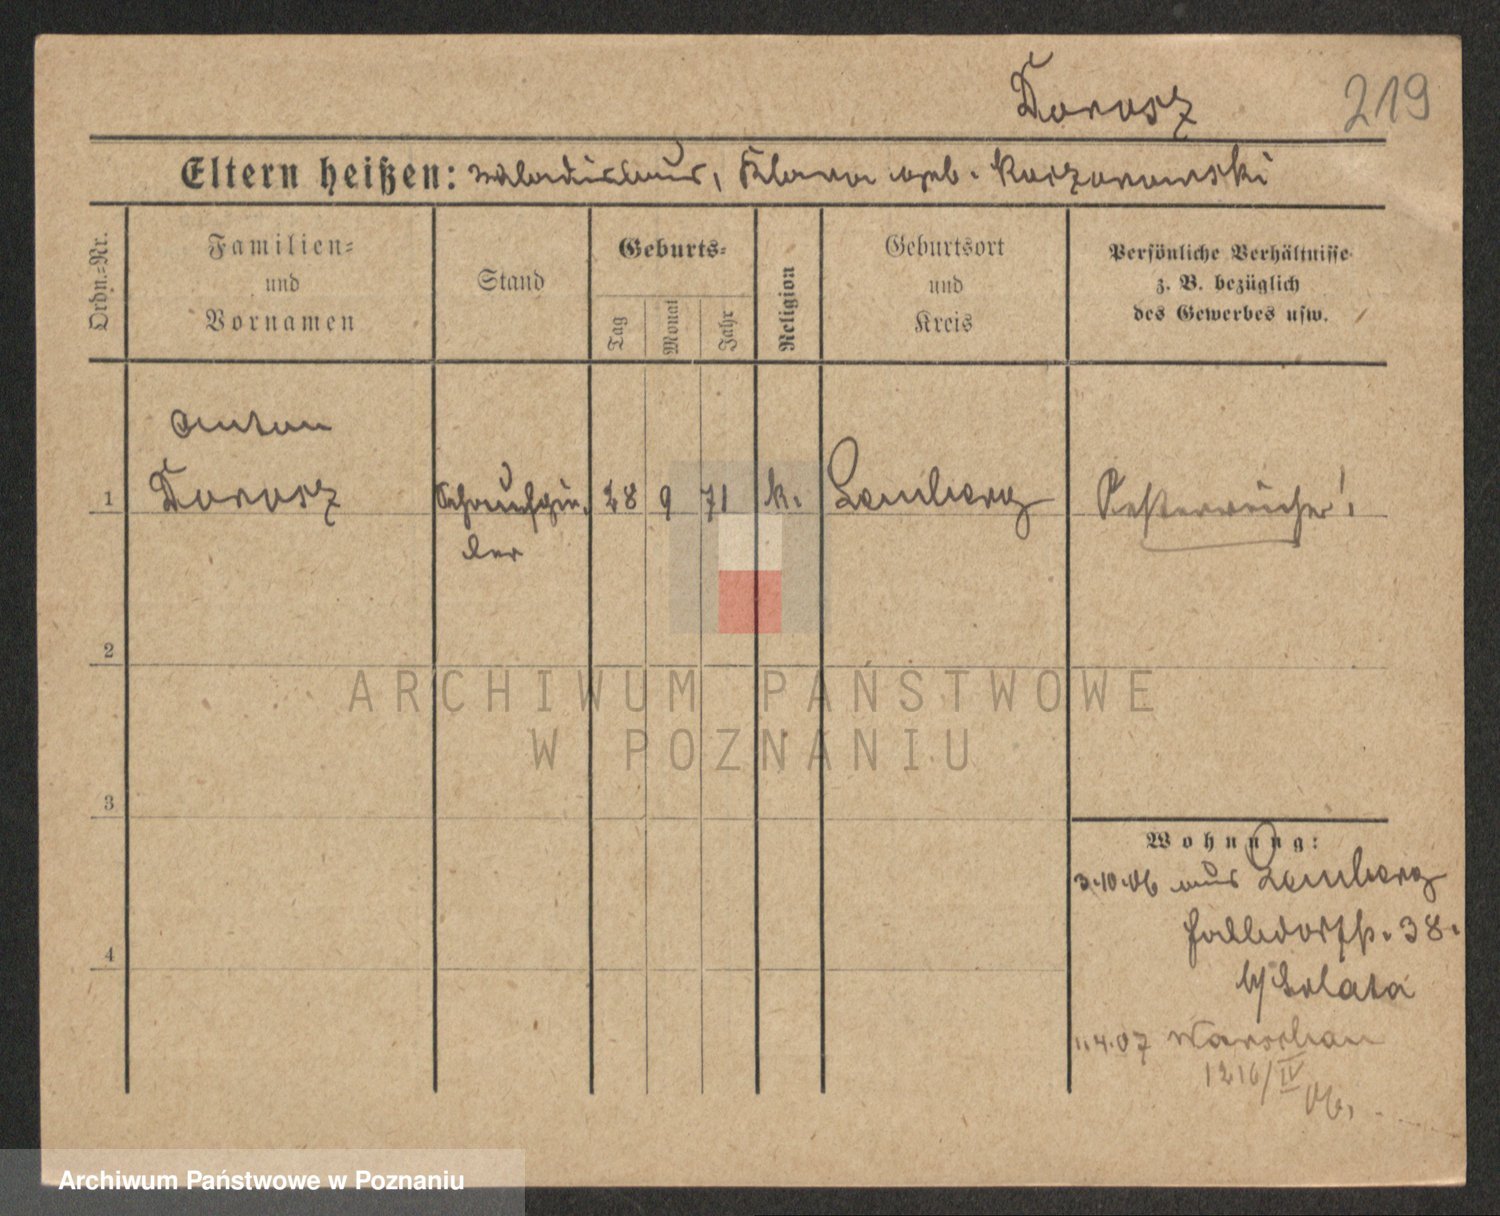 Dorosz
219
Eltern heißen: Wladislaus, Klara geb. Korzorowski
Ordn.=Nr.
Familien=
und
Vornamen
Stand
Geburts=
Tag
Monat
Jahr
Religion
Geburtsort
und
Kreis
Persönliche Verhältnisse
z. B. bezüglich
des Gewerbes usw.
Anton
1 Dorosz Schauspie- 28 9 71 k. Lemberg Oesterreicher!
ler
2
3
4
ARCHIWUM PAŃSTWOWE
W POZNANIU
Wohnung:
3.10.06 aus Lemberg
38.
b/ Solata
4.07 Warschau
1216/IV
06.
Archiwum Państwowe w Poznaniu